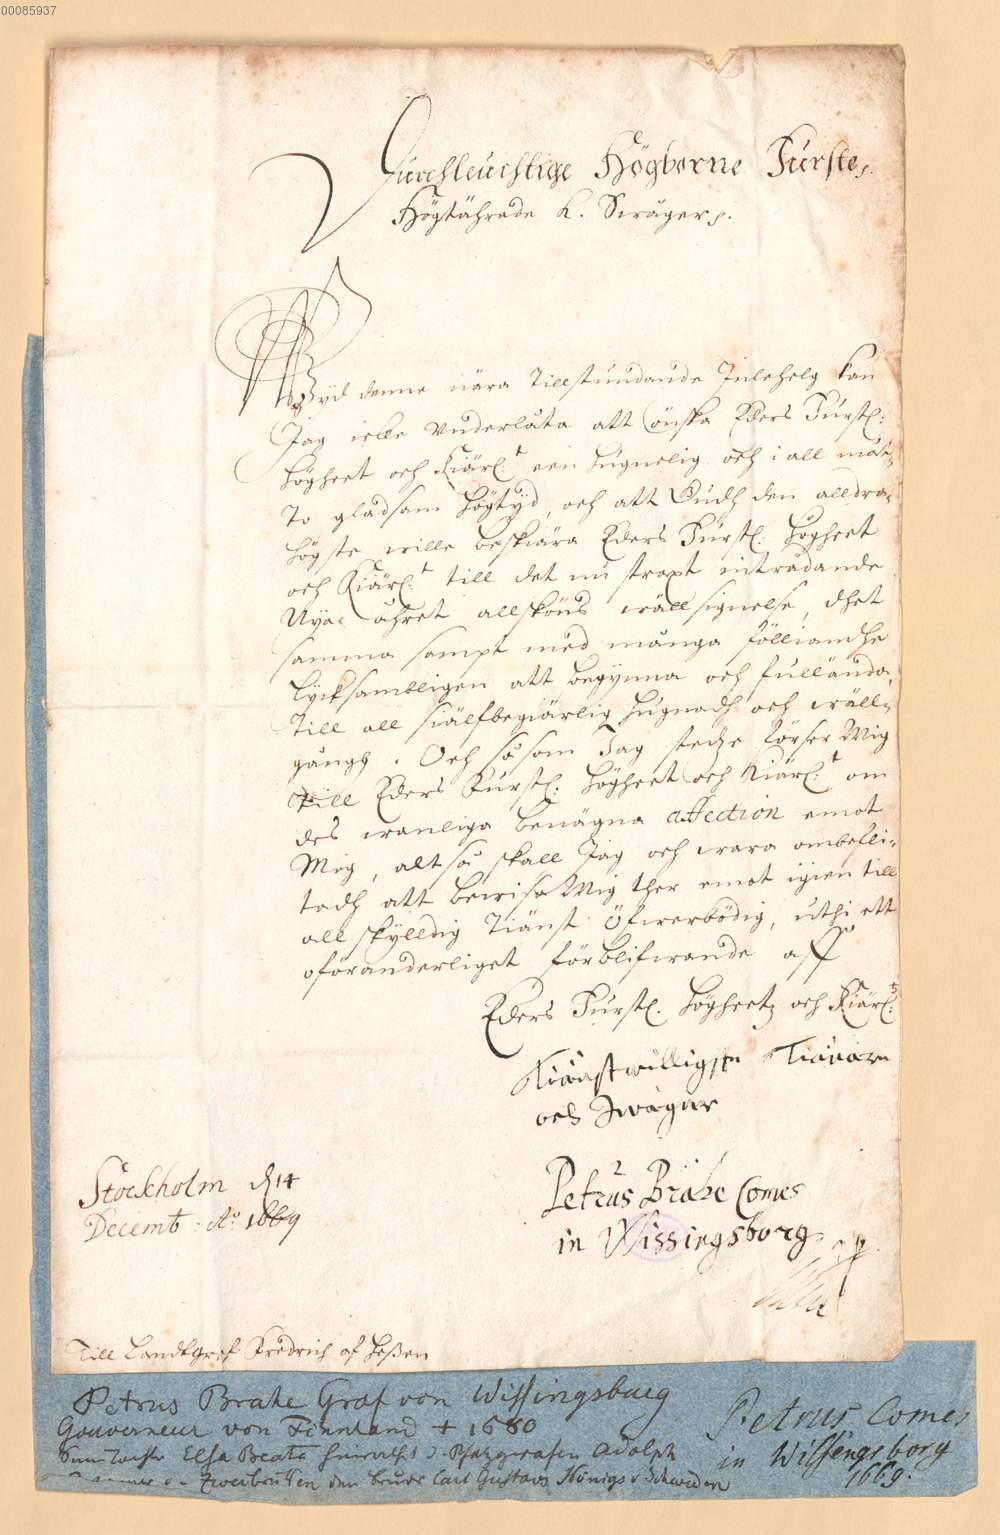 00085937
Durchleuchtige Högborne Furste,
Högtährade K. Swåger,
Wyd denne nära tillstundande Julehelg kan
Jag icke underlåta att önska Eders Furstl:
Högheet och Kiärl:t een hugnelig och i all måt-
to gladsam Högtyd, och att Gudh den alldra-
högste wille beskiära Eders Furstl: Högheet
och Kiärl:t till det nu straxt inträdande
Nya åhret allsköns wällsignelse, dhet
samma sampt med många fölliandhe
lycksambligen att begynna och fullända,
till all siälfbegiärlig hugnadh och wäll-
gångh. Och såsom Jag stedze förser Mig
till Eders Furstl: Högheet och Kiärl:t om
des wanliga benägna affection emot
Mig, altså skall Jag och wara ombefli-
tadh att bewisa Mig ther emot igien till
all skylldig tiänst öfwerbödig, uthi ett
oföranderliget förblifwande aff
Eders Furstl. Högheetz och Kiärl:s
Tiänstwilligste Tienare
och Swåger
Petrus Brahe Comes
in Wissingsborg
Stockholm d 14
Decemb: Ao 1669
Till Landtgref Fredrich af Heßen
Petrus Brahe Graf von Wissingsburg
Gouverneur von Finnland + 1680
Elsa Beata Pfalzgrafen Adolph
Zweibrücken den bruder Carl Gustavs Königs v Schweden
Petrus Comes
in Wissingsborg
1669.